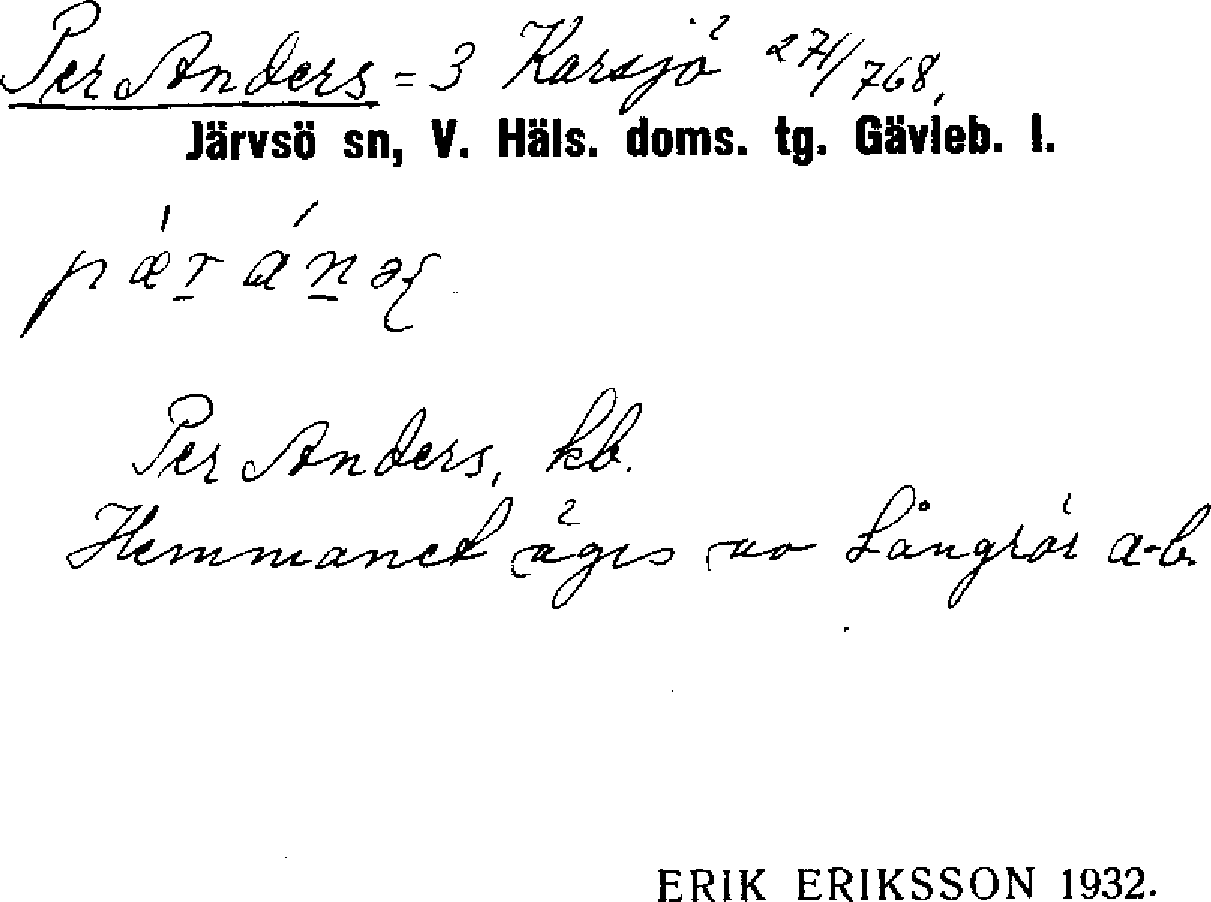 Per Anders = 3 Karsjö 271/768,
Järvsö sn, V. Häls. doms. tg. Gävleb. l.
Per Anders, kb.
Hemmanet äges av Långrör a-b.
ERIK ERIKSSON 1932.